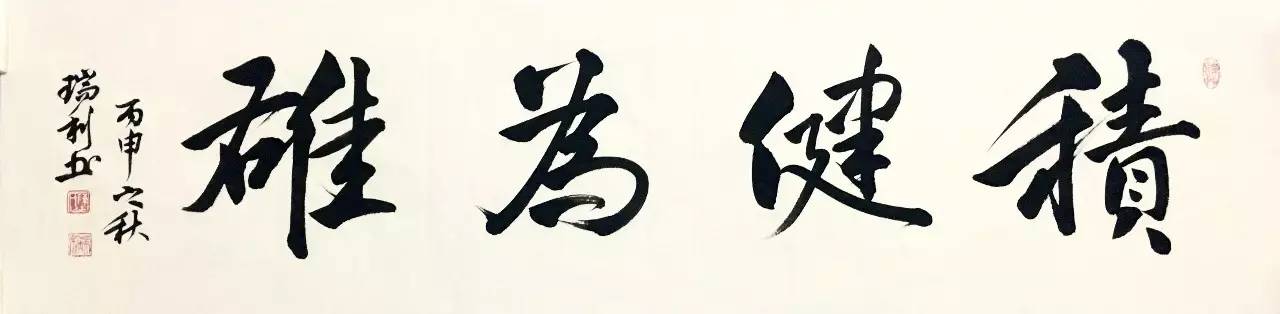 積健為雄
丙申之秋
瑞利书